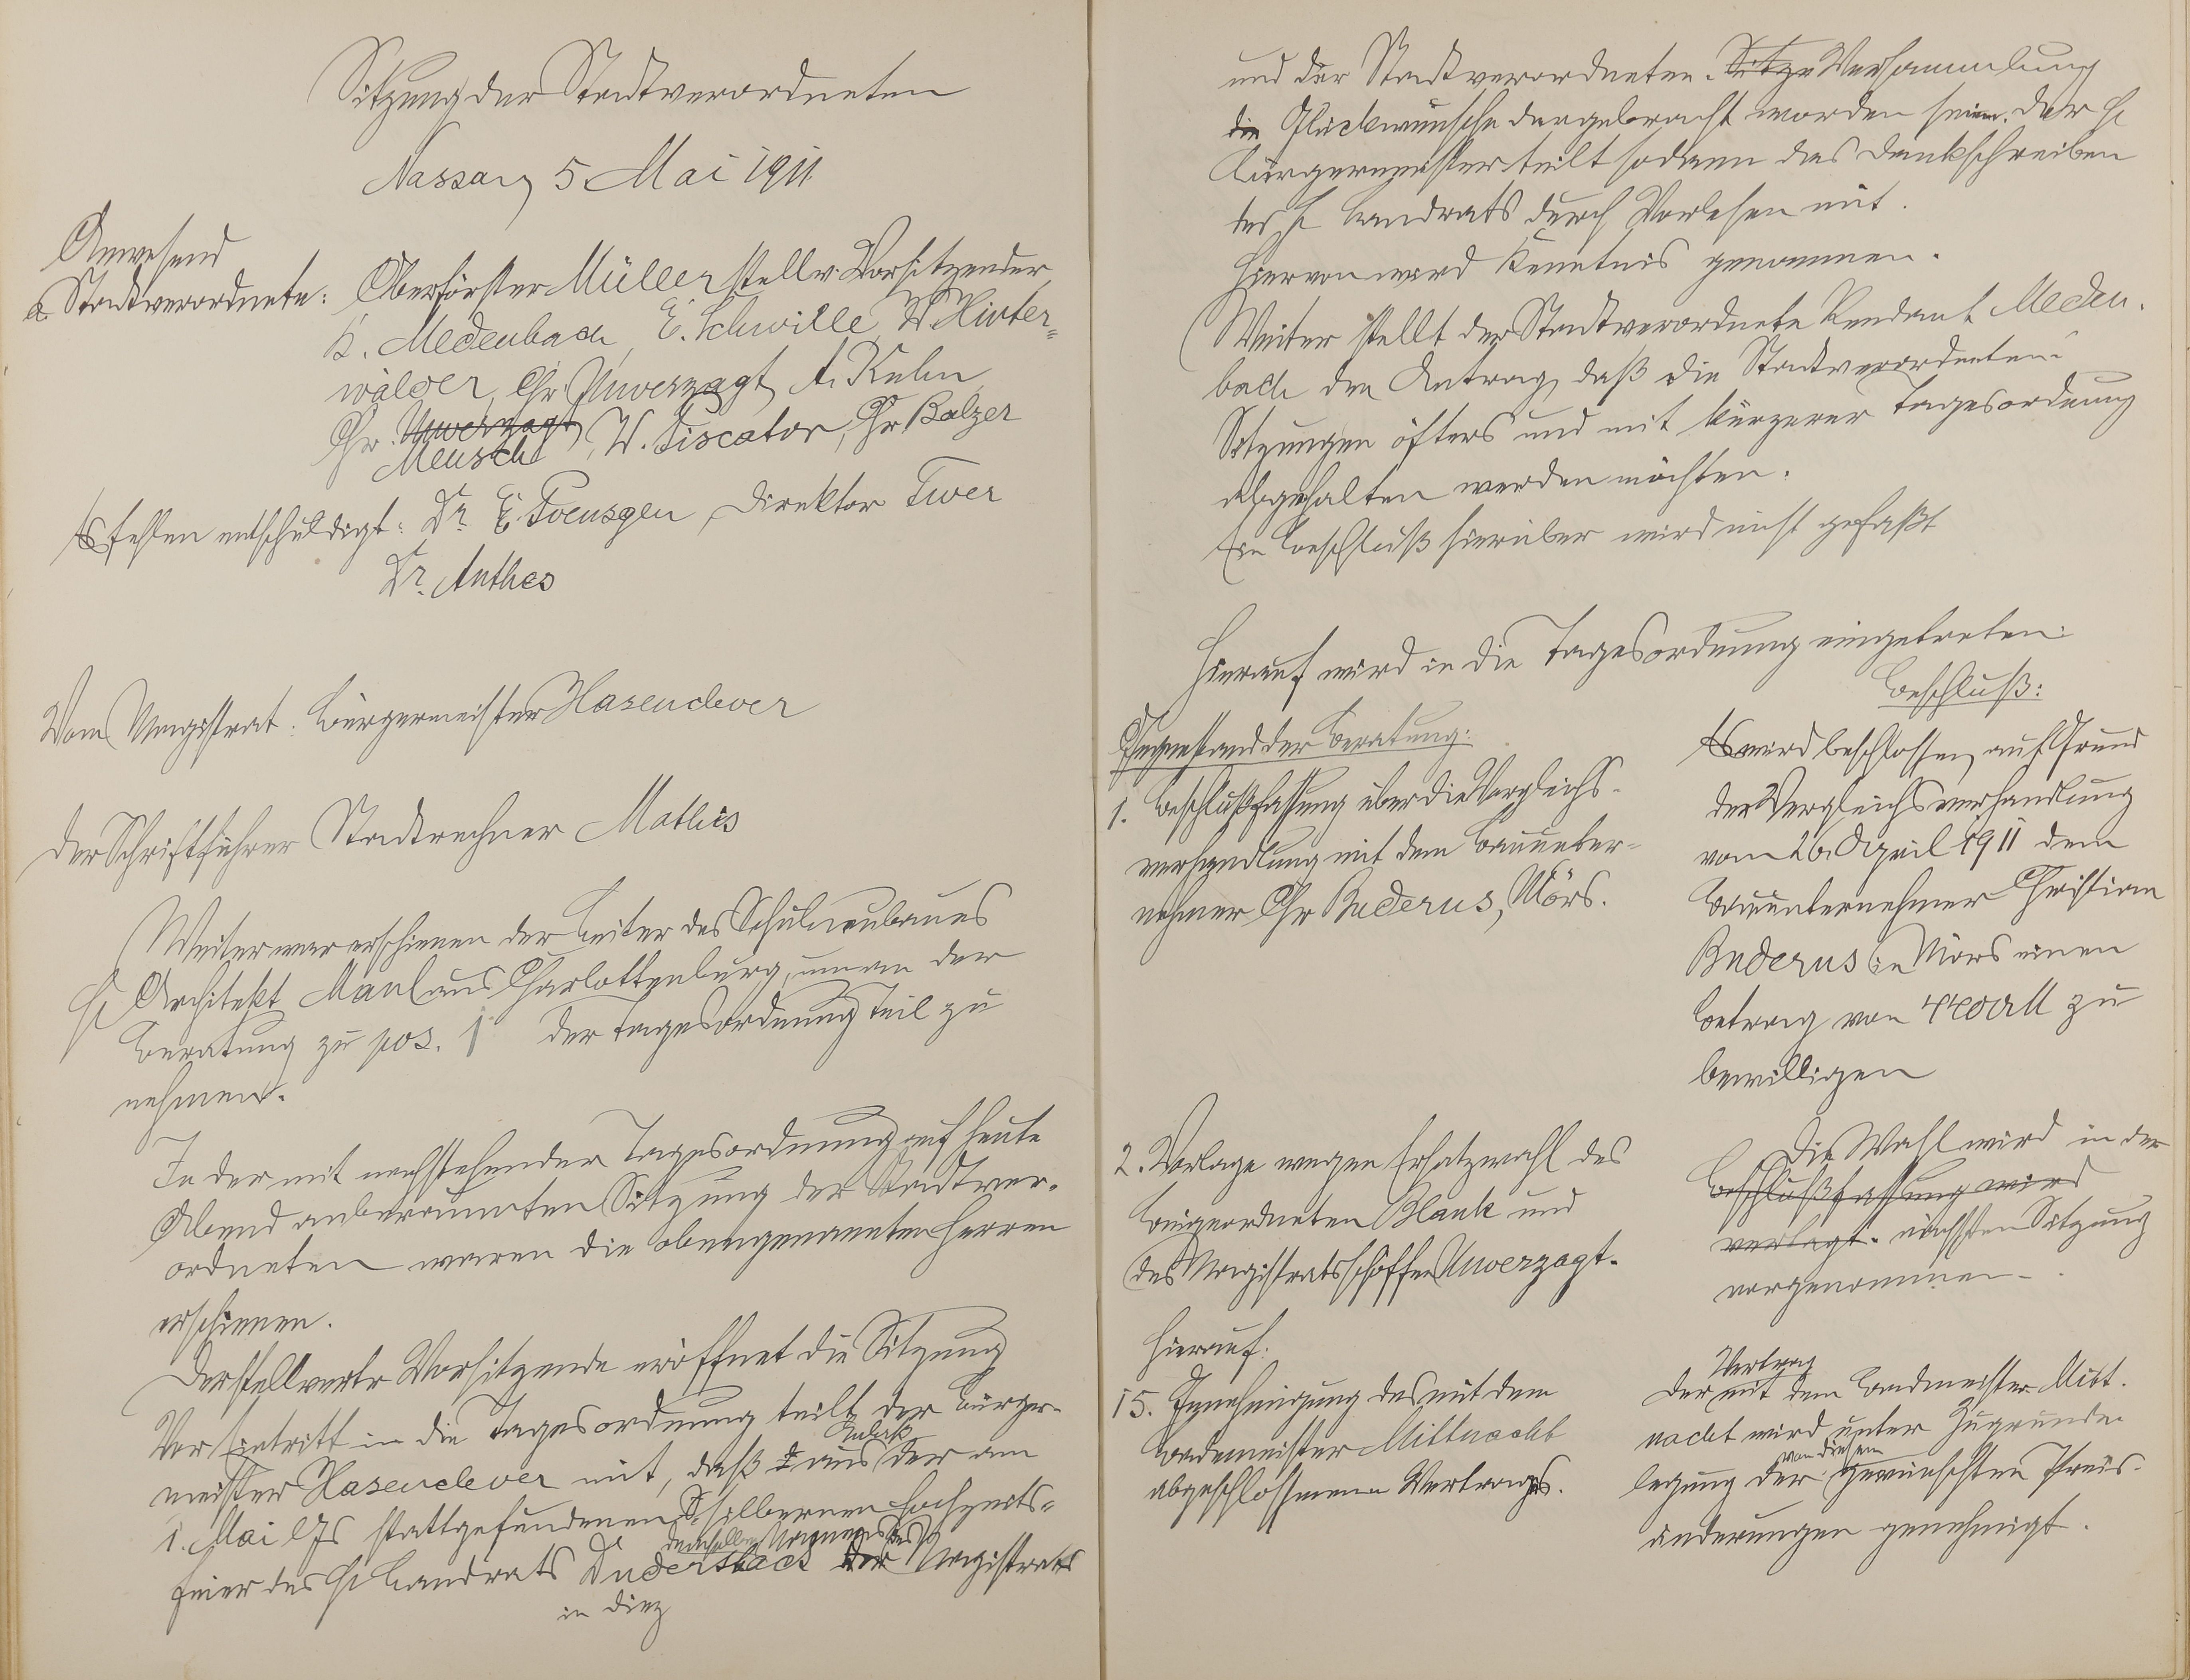 Sitzung der Stadtverordneten
Nassau, 5 Mai 1911
Anwesend
a Stadtverordnete: Oberförster Müller stellv. Vorsitzender
K. Medenbach, E. Schwille, W. Hinter=
wälder, Chr. Unverzagt, A. Kuhn,
Chr. Unverzagt
Meusch, W. Piscator, Chr. Balzer
Es fehlen entschuldigt: Dr. E. Poensgen, Direktor Twer
Dr. Anthes
Vom Magistrat: Bürgermeister Hasenclever
Der Schriftführer Stadtrechner Mathis
Weiter war erschienen der Leiter des Schulneubaues
H Architekt Maul aus Charlottenburg, um an der
Beratung zu pos. 1 der Tagesordnung teil zu
nehmen.
In der mit nachstehender Tagesordnung auf heute
Abend anberaumten Sitzung der Stadtver-
ordneten waren die obengenannten Herren
erschienen.
Der stellvertr Vorsitzende eröffnet die Sitzung
Vor Eintritt in die Tagesordnung teilt der Bürger-
meister Hasenclever mit, daß aus Anlaß der am
1. Mai ds Js stattgefundenen silbernen Hochzeits=
feier des H Landrats Duderstadt in Diez demselben Namens des Magistrats
und der Stadtverordneten-Sitzu Versammlung
die Glückwünsche dargebracht worden seien. Der H
Bürgermeister teilt sodann das Dankschreiben
des H Landrats durch Vorlesen mit.
Hiervon wird Kenntnis genommen.
Weiter stellt der Stadtverordnete Rendant Meden-
bach den Antrag, daß die Stadtverordneten-
Sitzungen öfters und mit kürzerer Tagesordnung
abgehalten werden möchten.
Ein Beschluß hierüber wird nicht gefaßt
Hierauf wird in die Tagesordnung eingetreten:
Gegenstand der Beratung:
1. Beschlußfassung über die Vergleichs-
verhandlung mit dem Bauunter=
nehmer Chr Buderus, Mörs.
Beschluß:
Es wird beschlossen, auf Grund
der Vergleichsverhandlung
vom 26. April 1911 dem
Bauunternehmer Christian
Buderus in Mörs einen
Betrag von 4400 M zu
bewilligen
2. Vorlage wegen Ersatzwahl des
Beigeordneten Blank und
des Magistratsschöffen Unverzagt.
Die Wahl wird in der
Beschlußfassung wird
vertagt. nächsten Sitzung
vorgenommen.
Hierauf:
15. Genehmigung des mit dem
Bademeister Mittnacht
abgeschlossenen Vertrages.
Der Vertrag mit dem Bademeister Mitt-
nacht wird unter Zugrunde
legung der von diesem gewünschten Preis-
änderungen genehmigt.